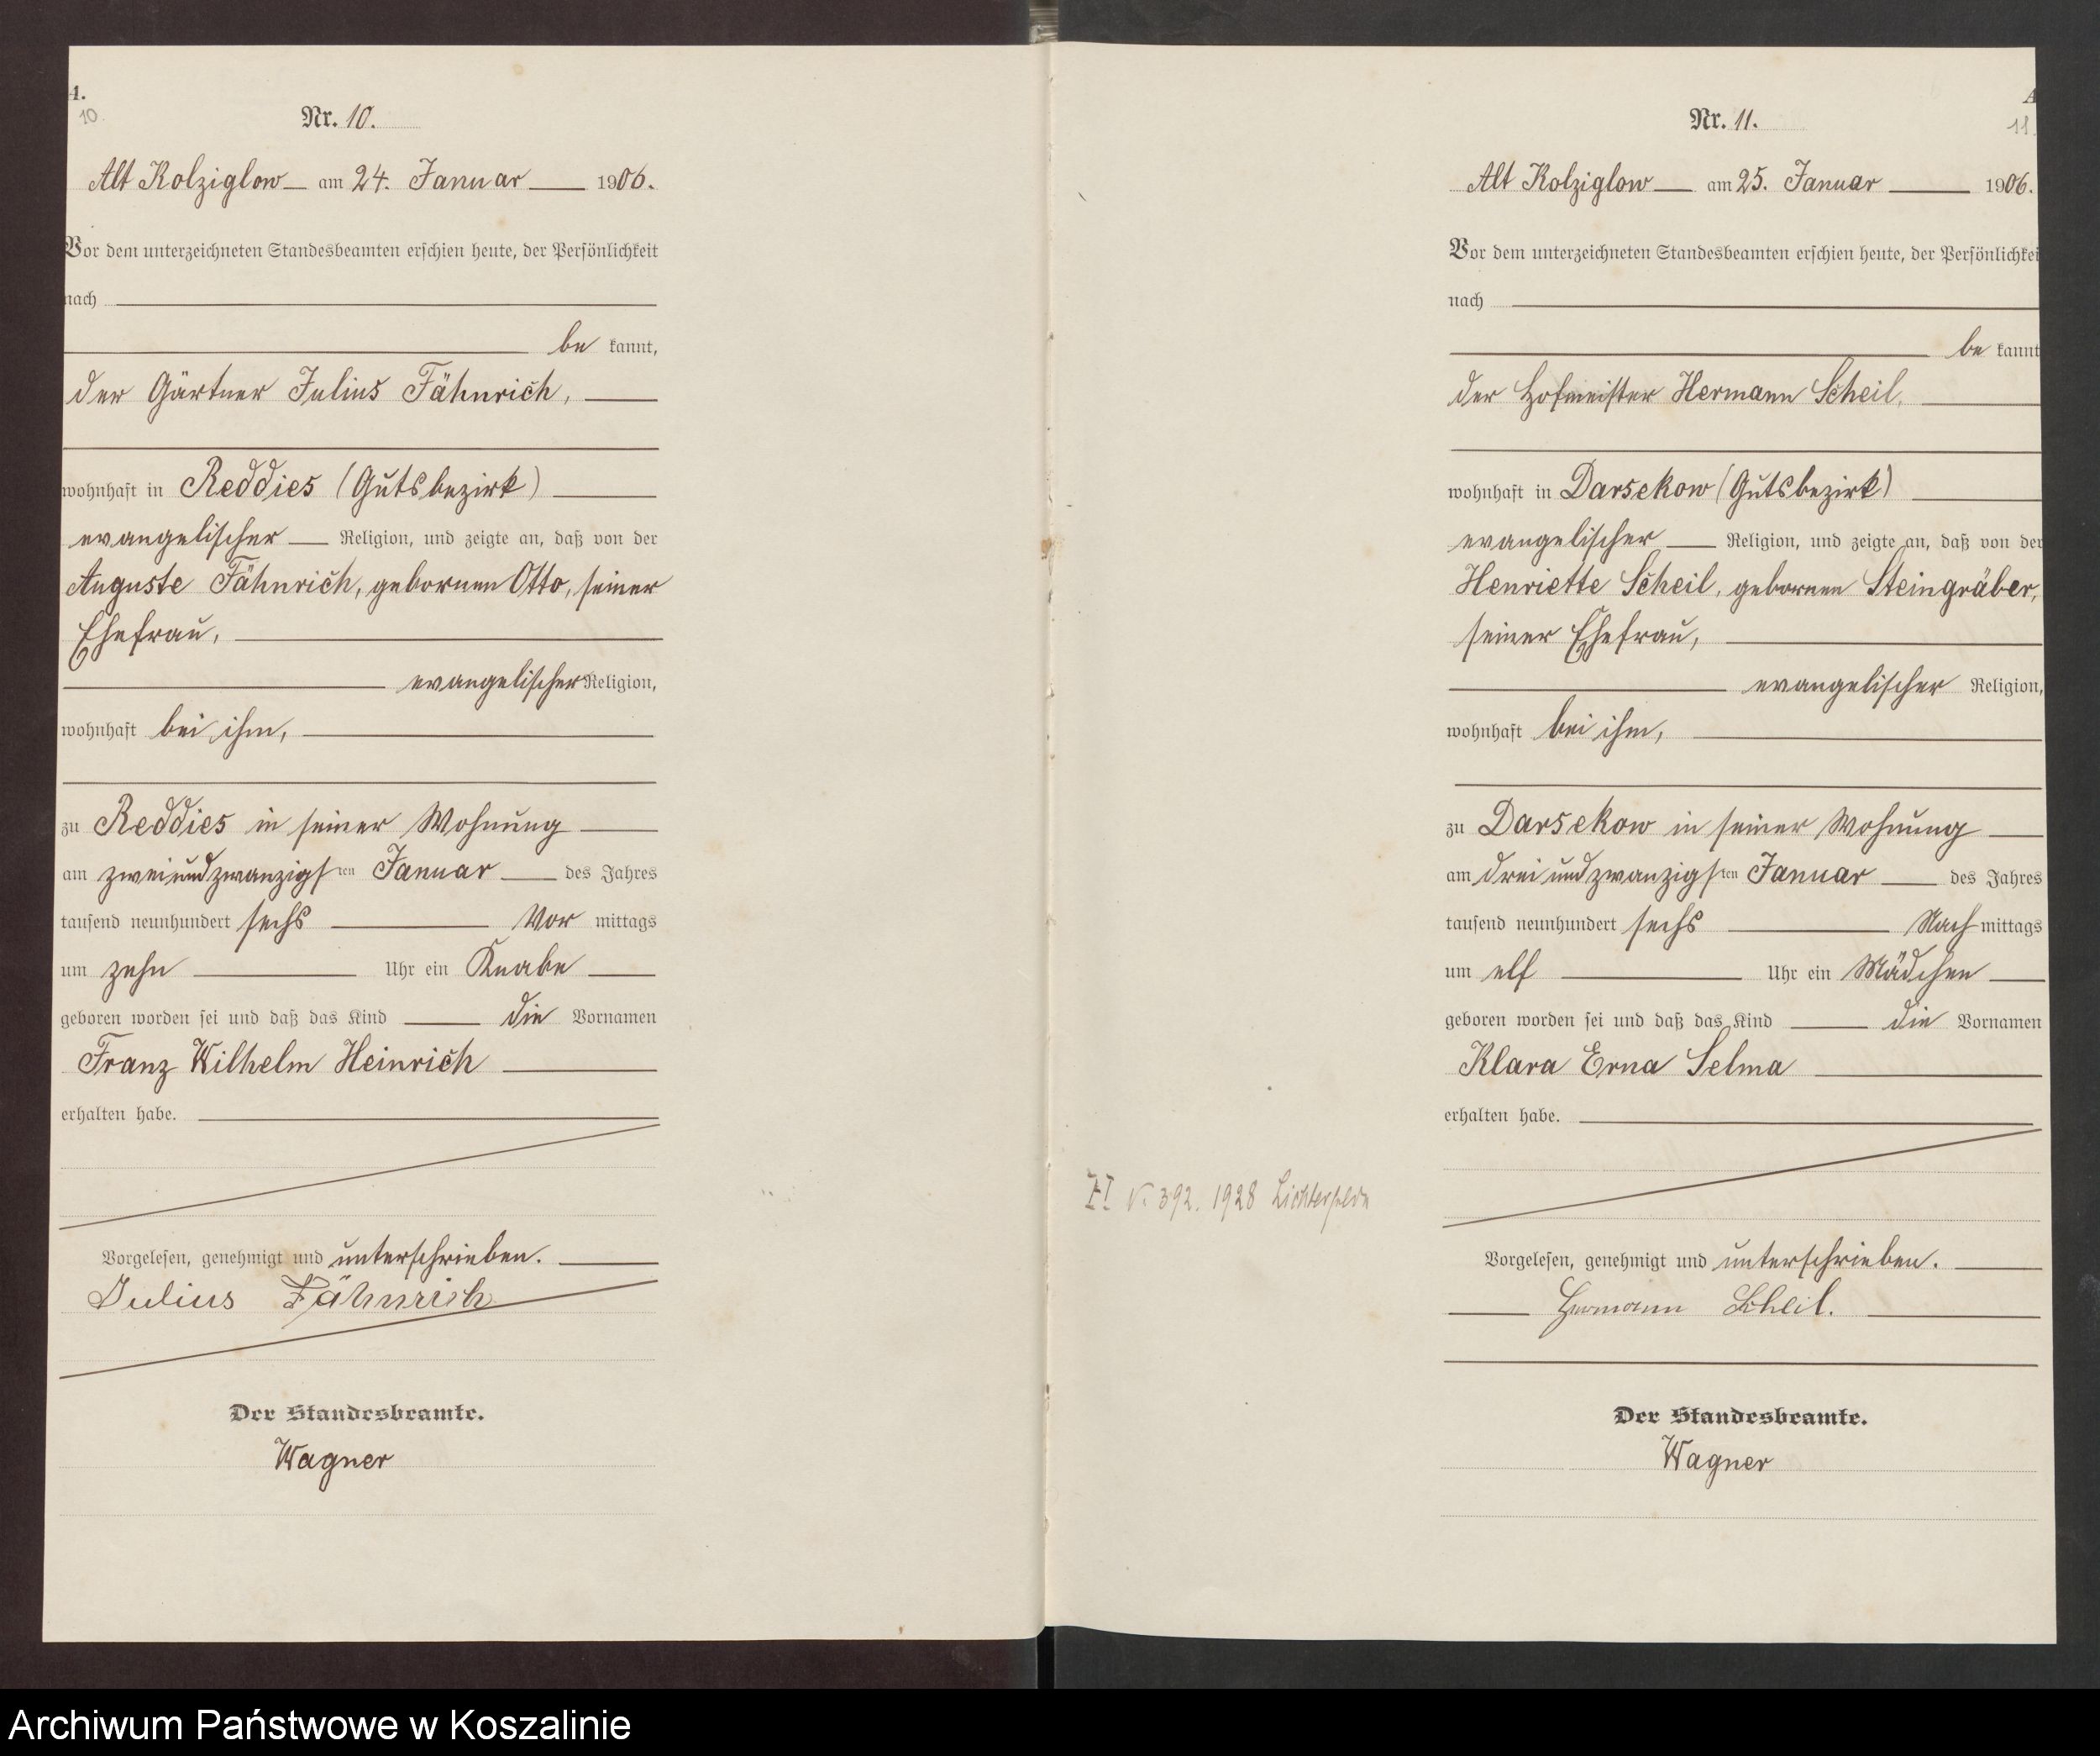 A.
10.
Nr. 10.
Alt Kolziglow am 24. Januar 1906.
Vor dem unterzeichneten Standesbeamten erschien heute, der Persönlichkeit
nach
be kannt,
der Gärtner Julius Fähnrich,
wohnhaft in Reddies (Gutsbezirk)
evangelischer Religion, und zeigte an, daß von der
Auguste Fähnrich, gebornen Otto, seiner
Ehefrau,
evangelischer Religion,
wohnhaft bei ihm,
zu Reddies in seiner Wohnung
am zweiundzwanzigsten Januar des Jahres
tausend neunhundert sechs Vor mittags
um zehn Uhr ein Knabe
geboren worden sei und daß das Kind die Vornamen
Franz Wilhelm Heinrich
erhalten habe.
Vorgelesen, genehmigt und unterschrieben.
Julius Fähnrich
Der Standesbeamte.
Wagner
A
11.
Nr. 11.
Alt Kolziglow am 25. Januar 1906.
Vor dem unterzeichneten Standesbeamten erschien heute, der Persönlichkei
nach
be kannt
der Hofmeister Hermann Scheil,
wohnhaft in Darsekow (Gutsbezirk)
evangelischer Religion, und zeigte an, daß von der
Henriette Scheil, gebornen Steingräber,
seiner Ehefrau,
evangelischer Religion,
wohnhaft bei ihm,
zu Darsekow in seiner Wohnung
am dreiundzwanzigsten Januar des Jahres
tausend neunhundert sechs Nach mittags
um elf Uhr ein Mädchen
geboren worden sei und daß das Kind die Vornamen
Klara Erna Selma
erhalten habe.
392. 1928 Lichterfelde
Vorgelesen, genehmigt und unterschrieben.
Hermann Scheil.
Der Standesbeamte.
Wagner
Archiwum Państwowe w Koszalinie